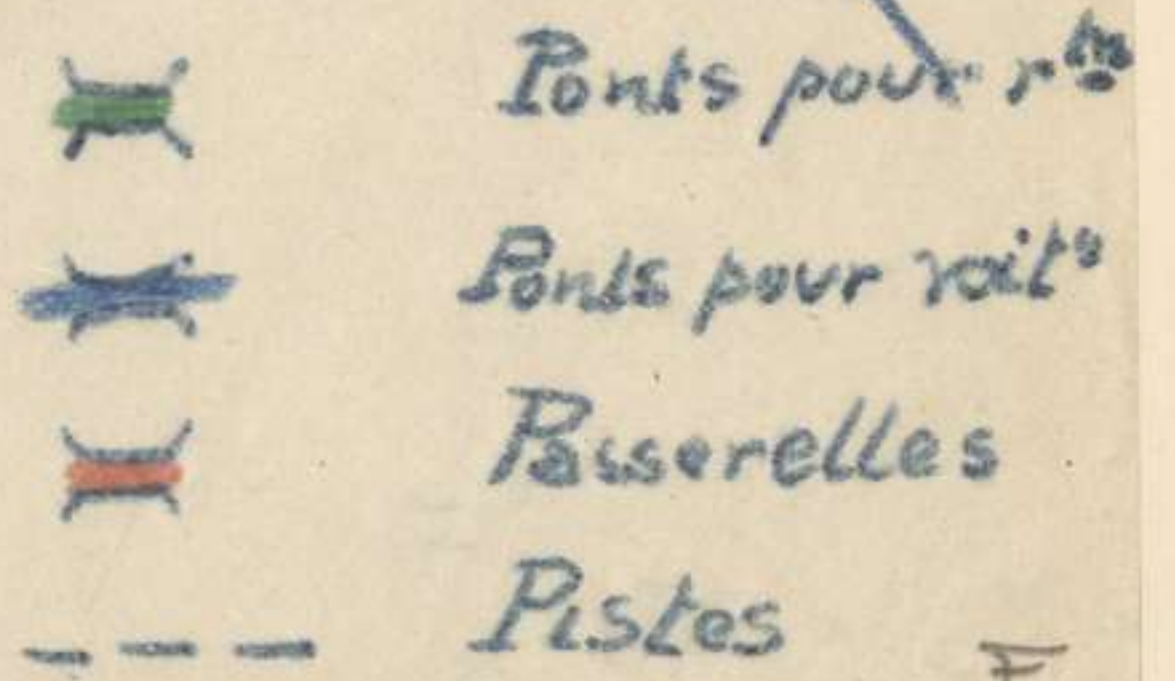 Ponts pour
Ponts pour voit^s
Passerelles
Pistes